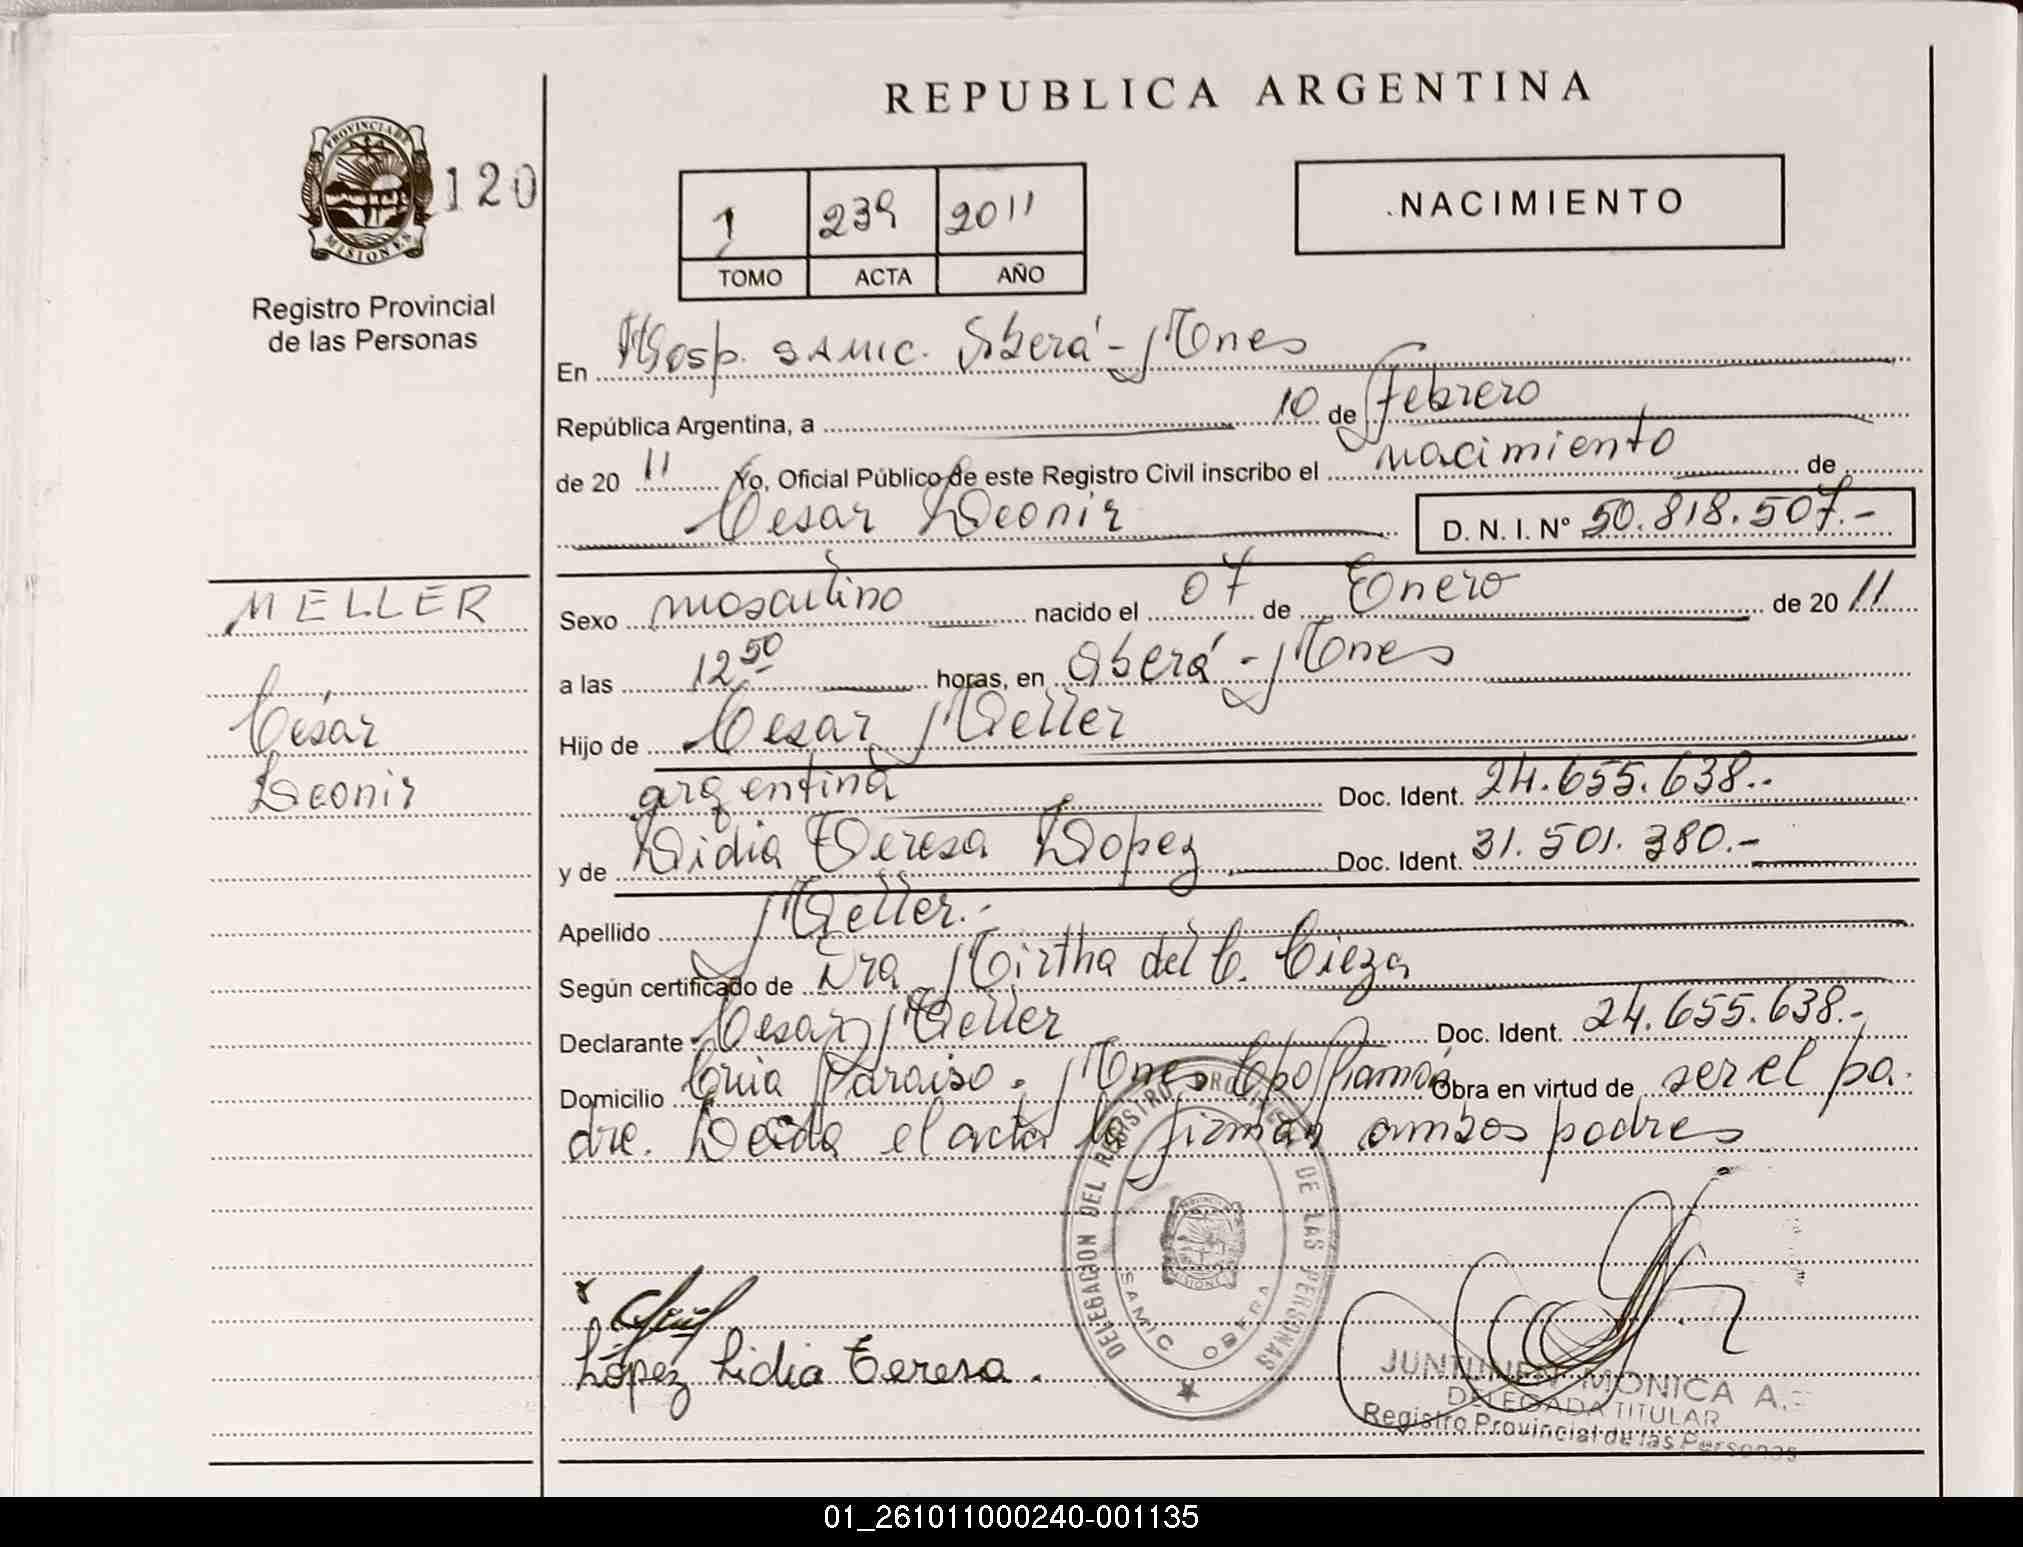 REPUBLICA ARGENTINA
PROVINCIA DE
MISIONES
120
Registro Provincial
de las Personas
1 239 2011
TOMO ACTA AÑO
NACIMIENTO
En Hosp. SAMIC. Oberá - Mnes
República Argentina, a 10 de Febrero
de 20 11 Yo, Oficial Público de este Registro Civil inscribo el nacimiento de
Cesar Leonir D. N. I. Nº 50.818.507.-
MELLER
César
Leonir
Sexo masculino nacido el 07 de Enero de 20 11
a las 12 50 horas, en Oberá - Mnes
Hijo de Cesar Meller
argentina Doc. Ident. 24.655.638.-
y de Lidia Teresa Lopez Doc. Ident. 31.501.380.-
Apellido Meller.-
Según certificado de Dra Mirtha del C. Cieza
Declarante Cesar Meller Doc. Ident. 24.655.638.-
Domicilio Paraiso. Mnes Obra en virtud de ser el pa.
dre. Leida el acta la firman ambos padres
DELEGACION DEL REGISTRO PROVINCIAL DE LAS PERSONAS
MISIONES
SAMIC OBERA
López Lidia Teresa.
JUNTUNEN MONICA A.
DELEGADA TITULAR
Registro Provincial de las Personas
01_261011000240-001135